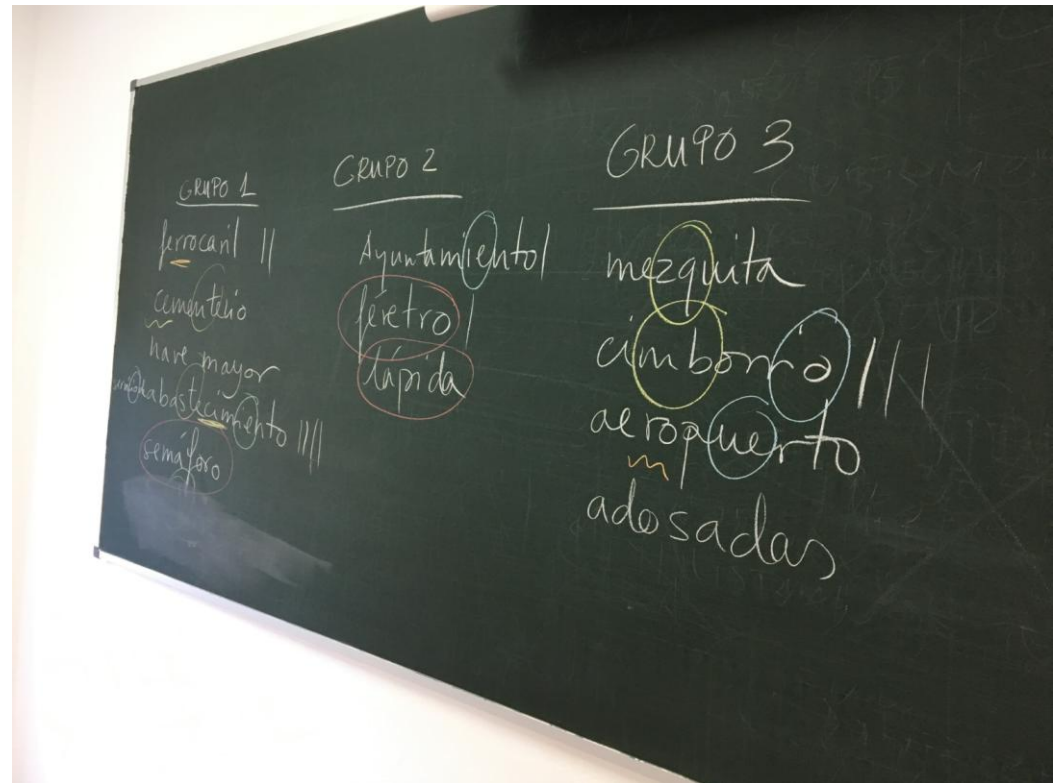 GRUPO 1
ferrocaril ||
cementerio
nave mayor
abastecimiento ||||
semáforo
GRUPO 2
Ayuntamiento |
féretro |
lápida
GRUPO 3
mezquita
cimborrio |||
aeropuerto
adosadas